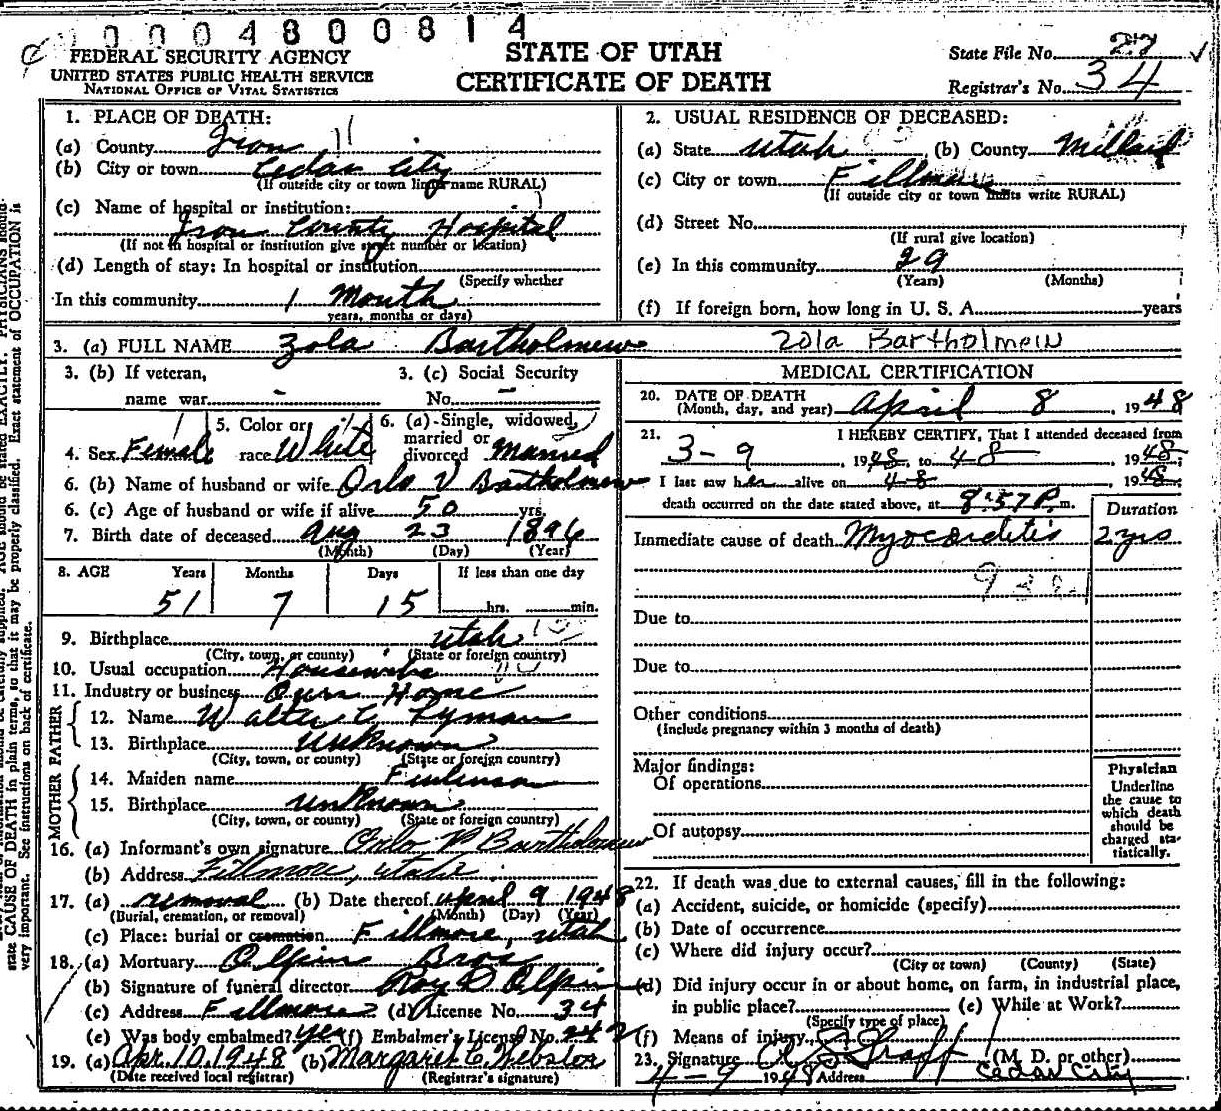 0000480 0814
STATE OF UTAH
CERTIFICATE OF DEATH
FEDERAL SECURITY AGENCY
UNITED STATES PUBLIC HEALTH SERVICE
NATIONAL OFFICE OF VITAL STATISTICS
State File No. 27
Registrar's No. 34
1. PLACE OF DEATH:
(a) County Iron
(b) City or town Cedar City
(If outside city or town limits name RURAL)
(c) Name of hospital or institution:
Iron County Hospital
(If not in hospital or institution give street number or location)
(d) Length of stay: In hospital or institution
(Specify whether
In this community 1 Month
years, months or days)
2. USUAL RESIDENCE OF DECEASED:
(a) State Utah, (b) County Millard
(c) City or town Fillmore
(If outside city or town limits write RURAL)
(d) Street No.
(If rural give location)
(e) In this community 29
(Years) (Months)
(f) If foreign born, how long in U. S. A. years
3. (a) FULL NAME Zola Bartholmew Zola Bartholmew
3. (b) If veteran, name war -
3. (c) Social Security No. -
4. Sex Female
5. Color or race White
6. (a) Single, widowed, married or divorced Married
6. (b) Name of husband or wife Orlo V Bartholmew
6. (c) Age of husband or wife if alive 50 yrs.
7. Birth date of deceased Aug 23 1896
(Month) (Day) (Year)
8. AGE Years Months Days If less than one day
51 7 15 hrs. min.
9. Birthplace Utah
(City, town, or county) (State or foreign country)
10. Usual occupation Housewife
11. Industry or business Own Home
FATHER
12. Name Walter C Lyman
13. Birthplace Unknown
(City, town, or county) (State or foreign country)
MOTHER
14. Maiden name Finlinson
15. Birthplace unknown
(City, town, or county) (State or foreign country)
16. (a) Informant's own signature Orlo V Bartholomew
(b) Address Fillmore, Utah
17. (a) removal (b) Date thereof April 9 1948
(Burial, cremation, or removal) (Month) (Day) (Year)
(c) Place: burial or cremation Fillmore, Utah
18. (a) Mortuary Olpin Bros
(b) Signature of funeral director Roy D Olpin
(c) Address Fillmore (d) License No. 34
(e) Was body embalmed? Yes (f) Embalmer's License No. 242
19. (a) Apr. 10, 1948 (b) Margaret C. Webster
(Date received local registrar) (Registrar's signature)
MEDICAL CERTIFICATION
20. DATE OF DEATH
(Month, day, and year) April 8, 1948
21. I HEREBY CERTIFY, That I attended deceased from
3-9, 1948, to 4-8, 1948;
I last saw her alive on 4-8, 1948;
death occurred on the date stated above, at 8:57 P. m.
Duration
Immediate cause of death Myocarditis 2 yrs
Due to
Due to
Other conditions
(Include pregnancy within 3 months of death)
Major findings:
Of operations
Of autopsy
Physician
Underline
the cause to
which death
should be
charged sta-
tistically.
22. If death was due to external causes, fill in the following:
(a) Accident, suicide, or homicide (specify)
(b) Date of occurrence
(c) Where did injury occur?
(City or town) (County) (State)
(d) Did injury occur in or about home, on farm, in industrial place,
in public place? (e) While at Work?
(Specify type of place)
(f) Means of injury
23. Signature (M. D. or other)
4-9 1948 Address Cedar City
state CAUSE OF DEATH in plain terms, so that it may be properly classified. Exact statement of OCCUPATION is
very important. See instructions on back of certificate.